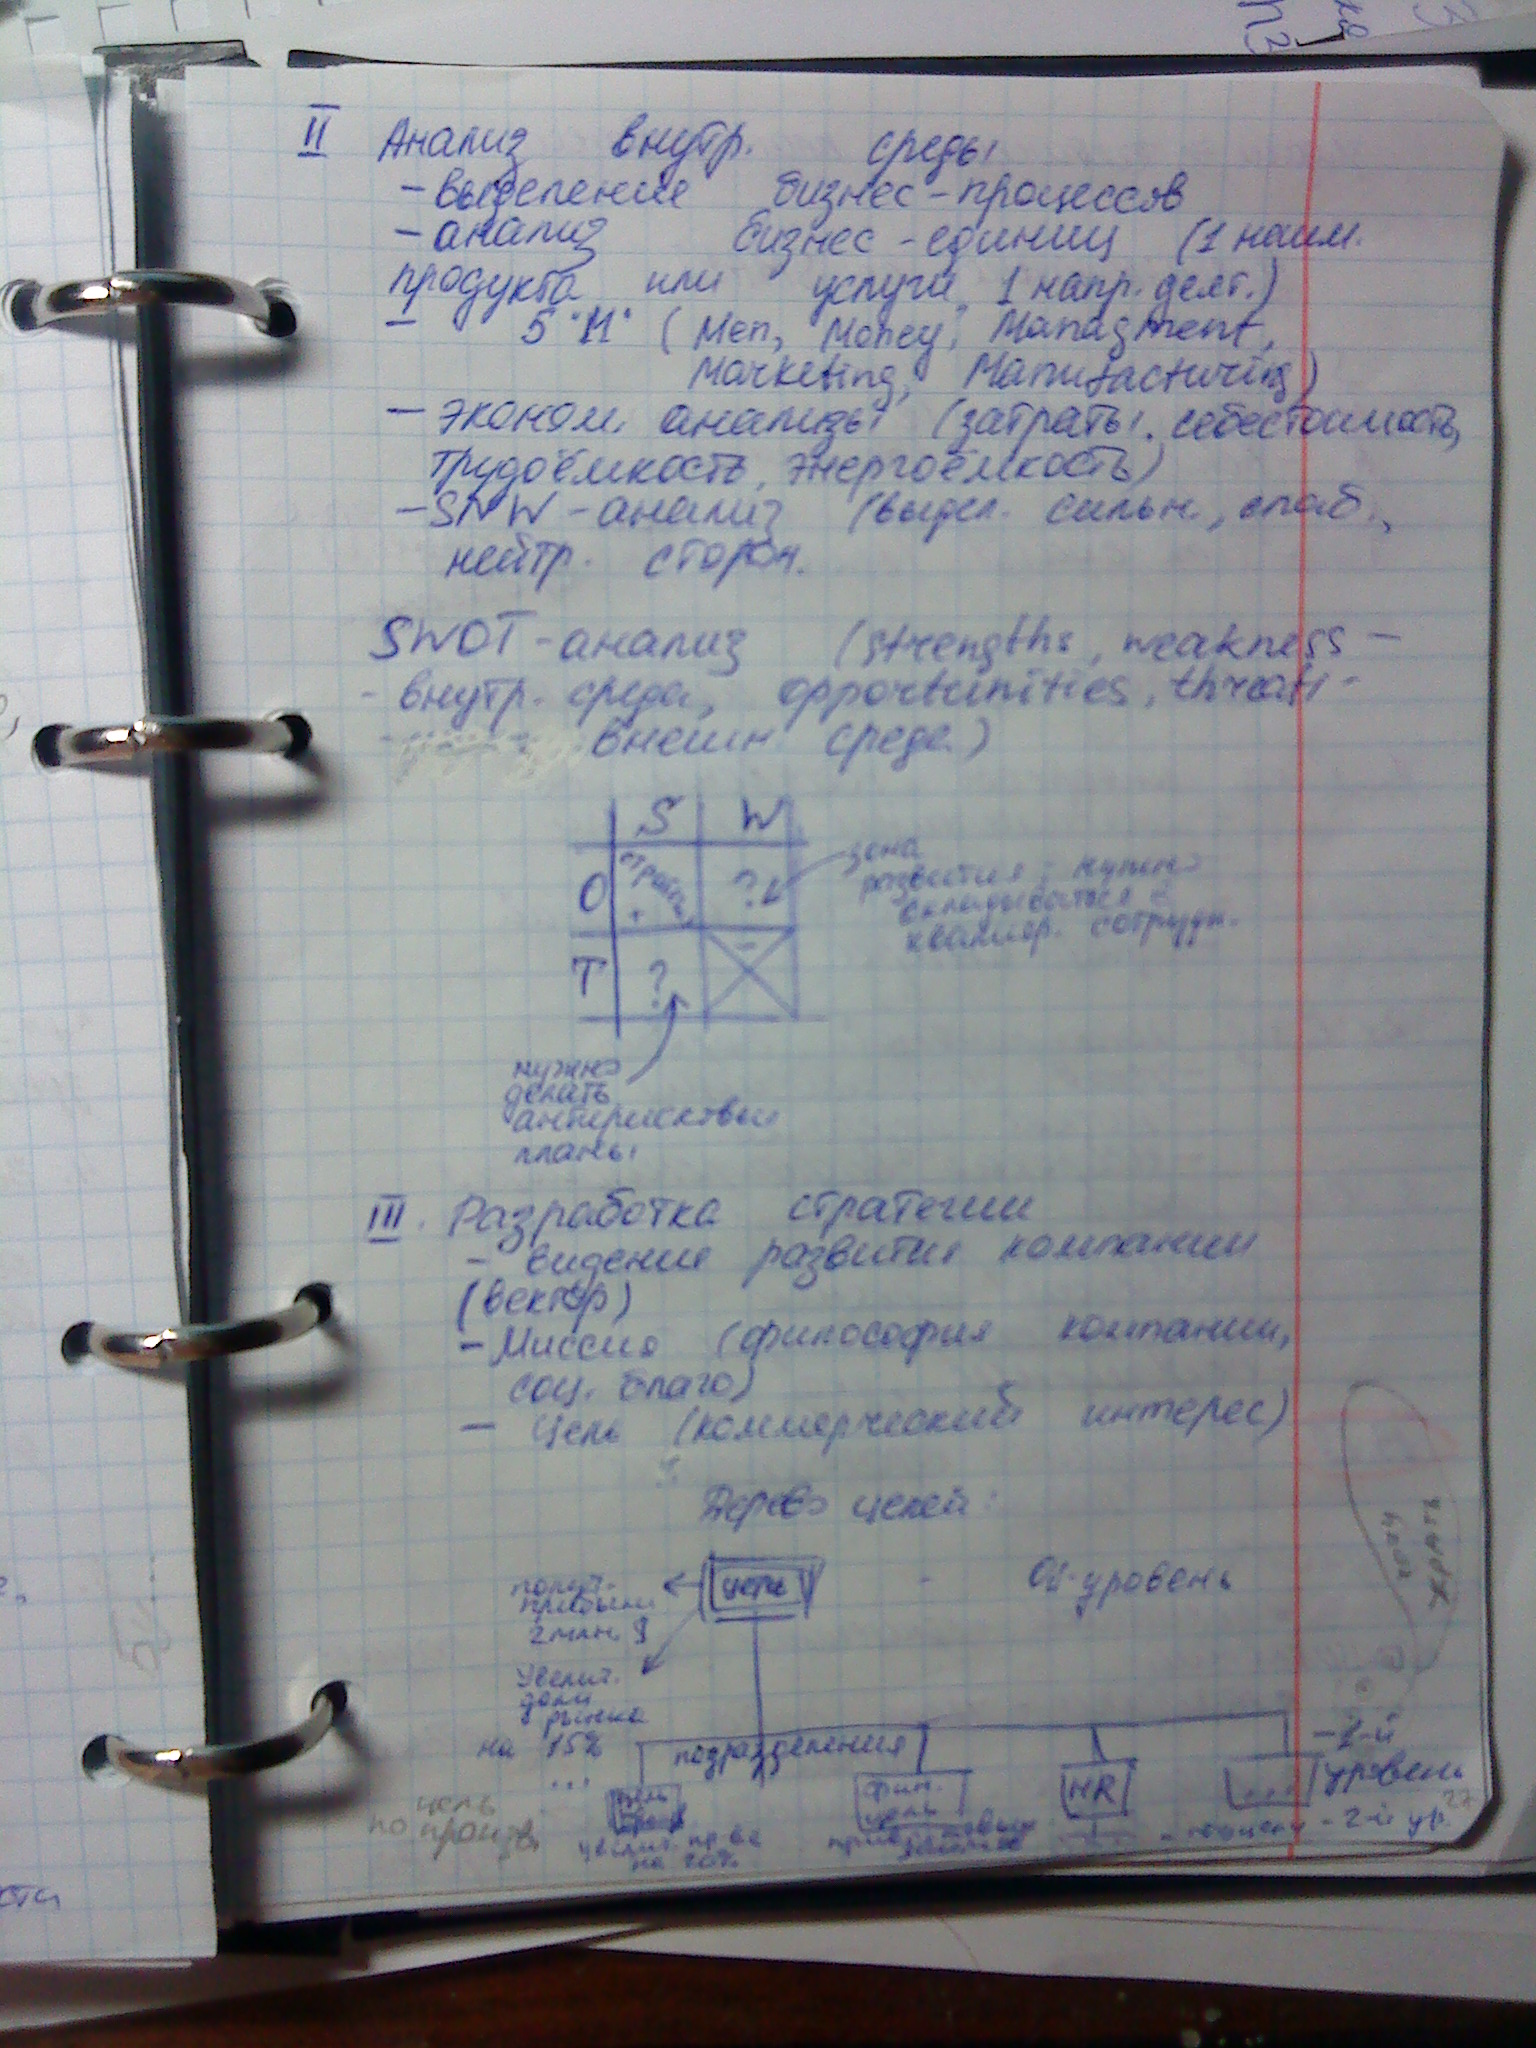 II Анализ внутр. среды
- выделение бизнес-процессов
- анализ бизнес-единиц (1 наим.
продукта или услуги, 1 напр. деят.)
- 5 "М" (Men, Money, Managment,
Marketing, Manufacturing)
- эконом. анализы (затраты, себестоимость,
трудоёмкость, энергоёмкость)
- SNW-анализ (выдел. сильн., слаб.,
нейтр. сторон.
SWOT-анализ (strengths, weakness -
- внутр. среда, opportunities, threats -
- внешн среда)
S W
O + ? цена
развития; нужно
складываться с
квалиф. сотрудн.
T ? -
нужно
делать
антирисковые
планы
III. Разработка стратегии
- видение развития компании
(вектор)
- Миссия (философия компании,
соц. благо)
- Цель (коммерческий интерес)
Дерево целей:
цель - уровень
получ.
прибыли
2 млн. $
Увелич.
доли
рынка
на 15%
...
подразделения - 1-й
уровень
цель фин. цель HR ...
увелич. пр-ва
на 20%
- 2-й ур.
цель
по произв.
хочу
жрать
27